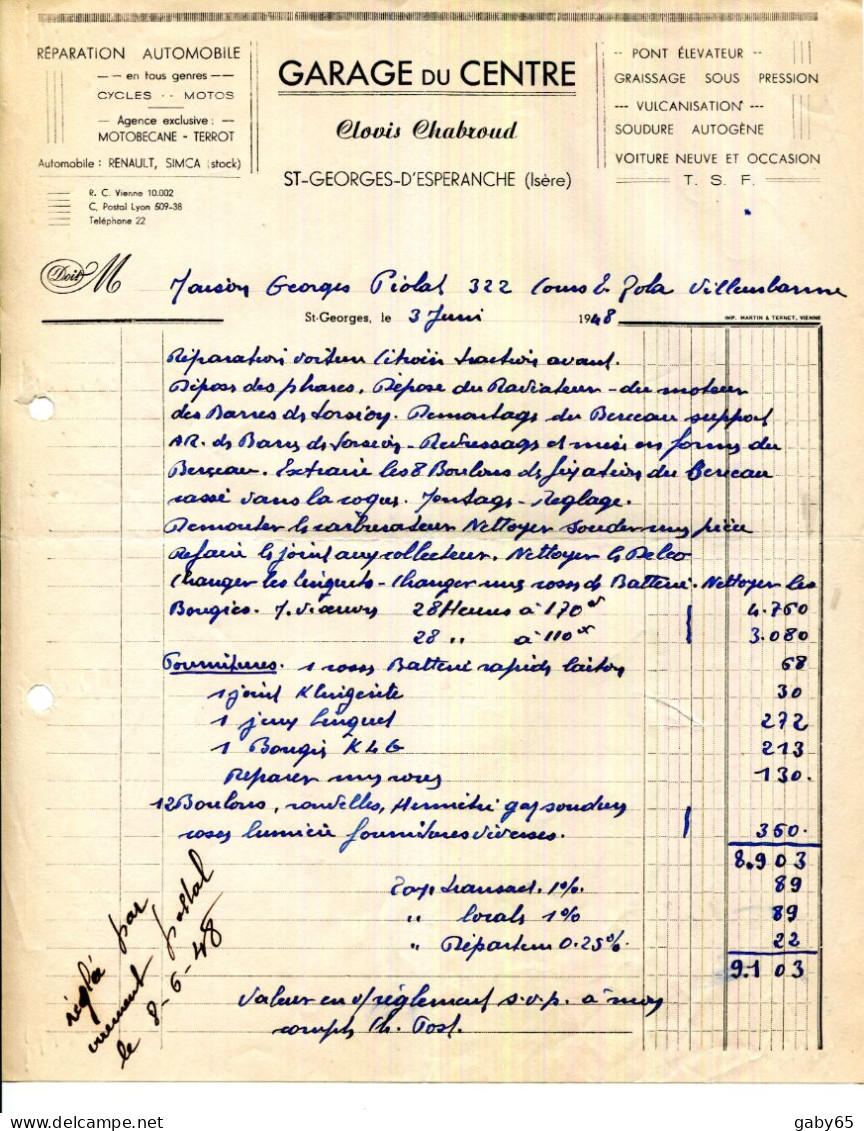 RÉPARATION AUTOMOBILE
-- en tous genres --
CYCLES -- MOTOS
Agence exclusive :
MOTOBECANE - TERROT
Automobile : RENAULT, SIMCA (stock)
R. C. Vienne 10.002
C. Postal Lyon 509-38
Téléphone 22
GARAGE DU CENTRE
Clovis Chabroud
ST-GEORGES-D'ESPERANCHE (Isère)
-- PONT ÉLEVATEUR --
GRAISSAGE SOUS PRESSION
--- VULCANISATION ---
SOUDURE AUTOGÈNE
VOITURE NEUVE ET OCCASION
T. S. F.
Doit M
Maison Georges Piolat 322 Cours E. Zola Villeurbanne
St-Georges, le 3 Juni 1948
IMP. MARTIN & TERNET, VIENNE
Réparation voiture Citroën traction avant.
Dépose des phares, Dépose du Radiateur - du moteur
des Barres de torsion. Demontage du Berceau support
AR. de Barres de torsion - Redressage et mise en forme du
Berceau. Extraire les 8 Boulons de fixation du Berceau
cassé dans la coque. Montage - Reglage.
Demonter le carburateur Nettoyer souder une pièce
Refaire le joint aux collecteur. Nettoyer le Delco
Changer les linguets - Changer une cosse de Batterie. Nettoyer les
Bougies. M. d'œuvre 28 Heures à 170 4.760
28 " à 110 3.080
Fournitures. 1 cosse Batterie rapide laiton 68
1 joint Klingerite 30
1 jeux linguet 272
1 Bougie K L G 213
Reparer une roues 130.
12 Boulons, rondelles, Hermetic gaz soudure
cosses lumière fournitures diverses. 350.
8.903
Taxe transact. 1%. 89
" locale 1% 89
" Répartem 0.25%. 22
9.103
Valeur en v/ réglement s.v.p. à mon
compte Ch. Post.
réglé par
virement postal
le 8-6-48
gaby65